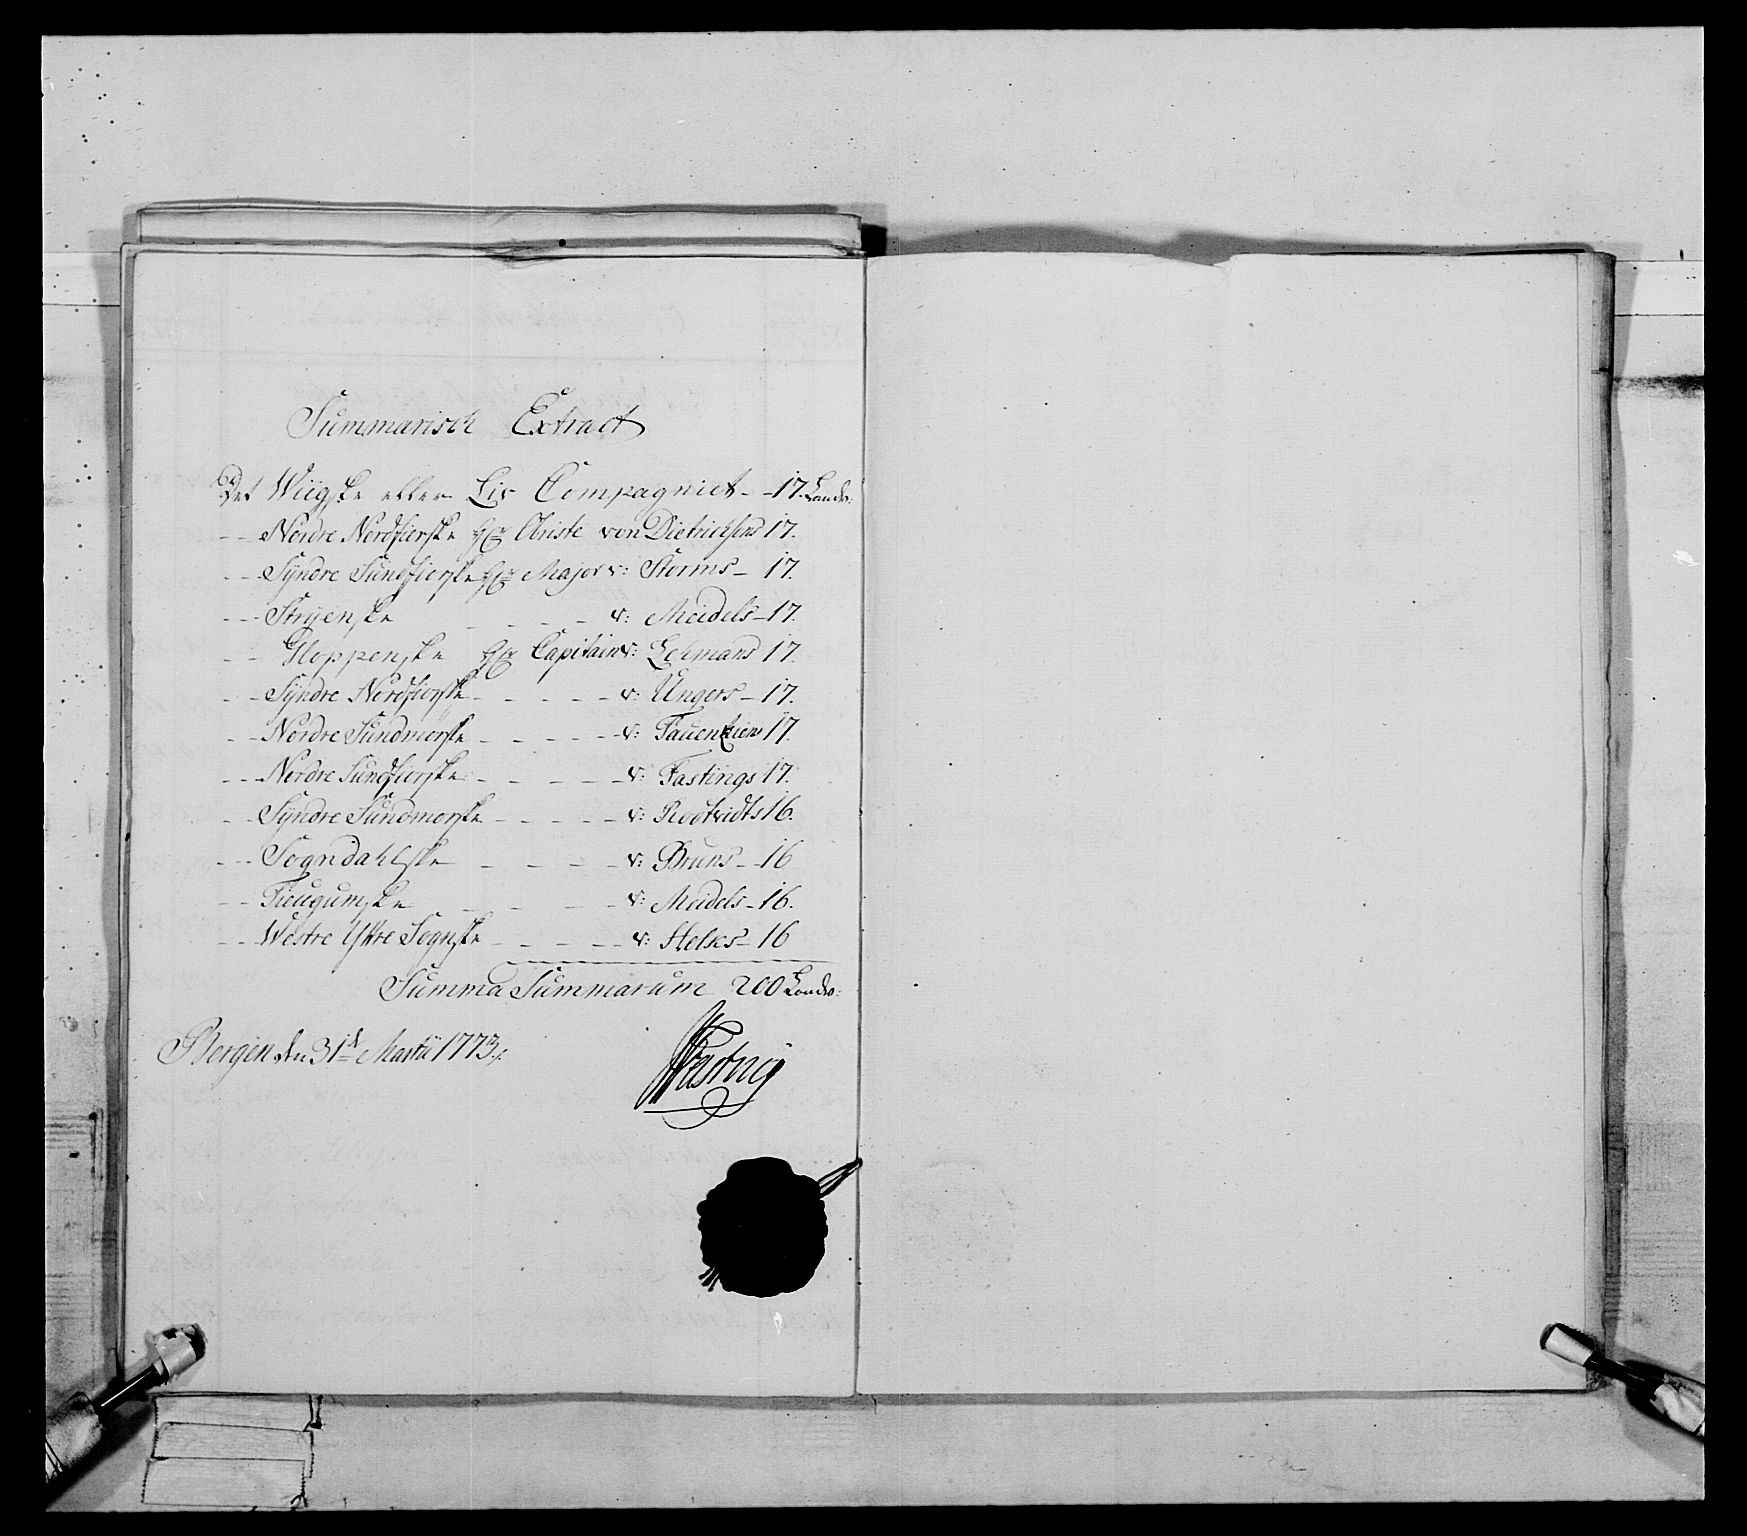 Summarisch Extract
Det Wiigske eller Liv Compagniet - - 17. Landv:
- - Nordre Nordfiorske Hr: Obriste von Dietrichsens 17.
- - Syndre Sundfiorske Hr: Major v: Storms - 17.
- - Stryenske - - - - v: Meidels - 17.
- - Gloppenske Hr: Capitain v: Lehmans 17.
- - Syndre Nordfiorske - - - - - v: Ungers - 17.
- - Nordre Sundmorske - - - - - v: Tauentziens 17.
- - Nordre Sundfiorske - - - - - v: Fastings 17.
- - Syndre Sundmorske - - - - - v: 16.
- - Sogndahlske - - - - v: Bruns - 16
- - - - - - v: Meidels - 16.
- - Westre Yttre Sognske - - - - - v: Helsks - 16
Summa Summarum 200 Landv:
Bergen den 31d Martii 1773.
Fasting